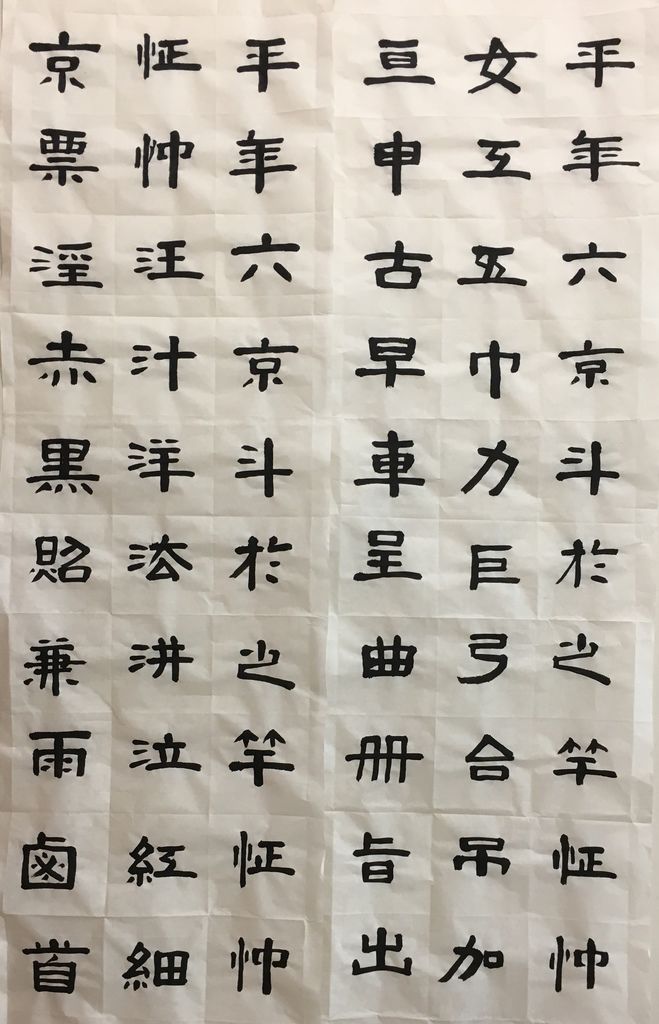 平年六京斗於之竿怔忡
女工五巾力巨弓合吊加
亘申古早車呈曲册旨出
平年六京斗於之竿怔忡
怔忡汪汁洋法汫泣紅細
京票淫赤黒兼雨鹵首